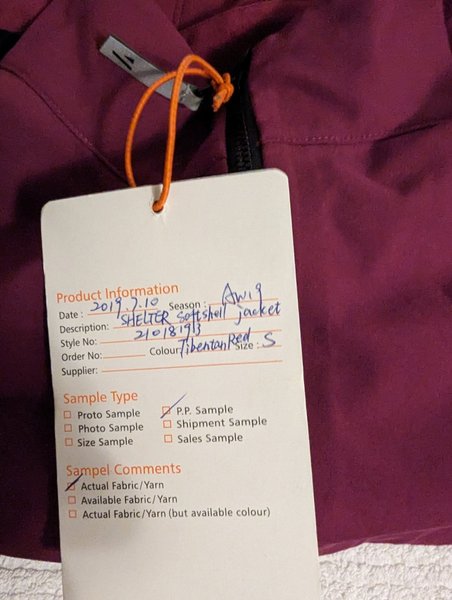 Product Information
Date: 2019.7.10 Season: AW19
Description: SHELTER Softshell jacket
Style No: 21018193
Order No: Colour: Tibentan Red Size: S
Supplier:
Sample Type
Proto Sample P.P. Sample
Photo Sample Shipment Sample
Size Sample Sales Sample
Sampel Comments
Actual Fabric/Yarn
Available Fabric/Yarn
Actual Fabric/Yarn (but available colour)